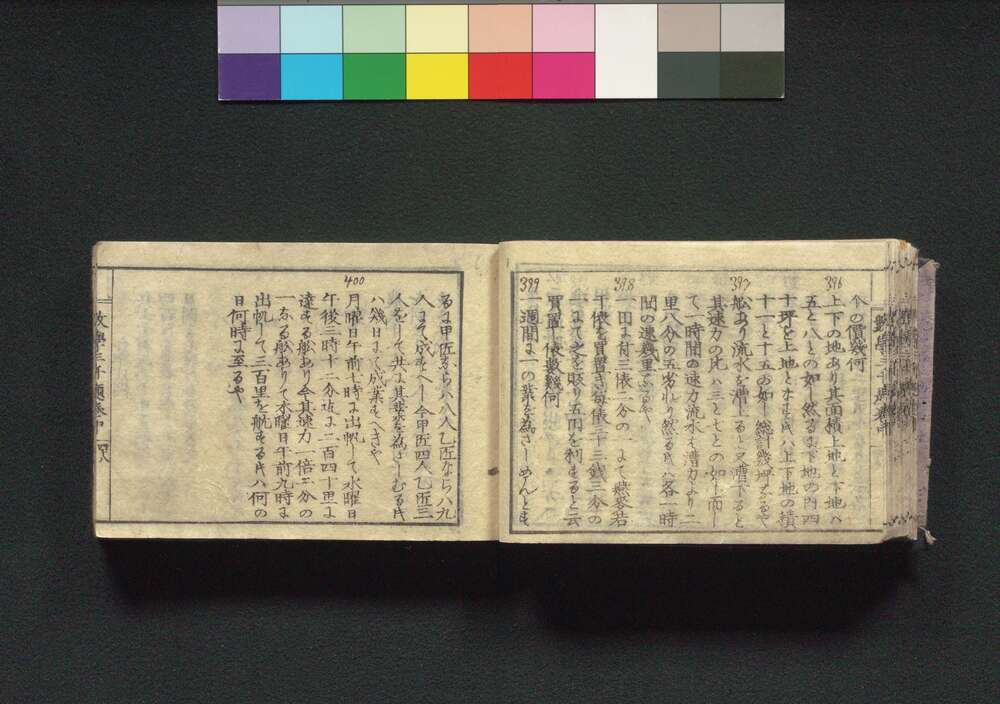 今の價幾何
396
上下の地あり其面積上地と下地ハ
五と八との如し然るに下地の内四
十坪を上地となす時ハ上下地の積
十一と十五の如し総計幾坪なるや
397
舩あり流水を漕上ると又漕下ると
其速力の比ハ三と七との如し而し
て一時間の速力流水は漕力より二
里八分の五劣れり然る時ハ各一時
間の速幾里なるや
398
一円に付三俵二分の一にて
千俵を買置き毎俵三十三銭三分の
一にて之を販り五円を利すると云
買單俵數幾何
399
一週間に一の業を為さしめんとす
るに甲匠ならハ八人乙匠ならハ九
人にて成すへし今甲匠四人乙匠三
人をして共に其業を為さしむる時
ハ幾日にて成業すへきや
400
月曜日午前十時に出帆して水曜日
午後三時十二分迄に二百四十里に
達する舩あり今其速力一倍三分の
一なる舩ありて木曜日午前九時に
出帆して三百里を航する時ハ何の
日何時に至るや
數學三千題卷中 四八